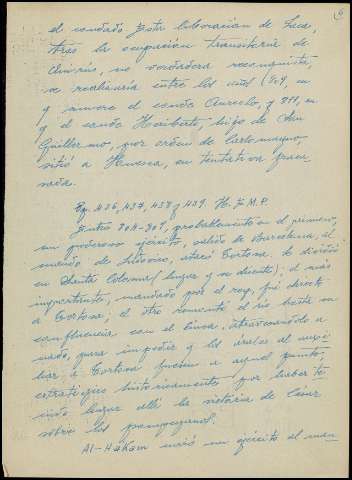 6
el condado
Tras la ocupación transitoria de
no verdadera reconquista,
se realizaría entre los años 809, en
y muere el conde Aureolo, y 811, en
q el conde Heriberto, hijo de San
Guillermo, por orden de Carlomagno,
sitió a Huesca, en tentativa fraca
sada.
Pg. 436, 437, 438 y 439. H. J. M. P.
Entre 804-809, probablemente en el primero,
un poderoso ejército, salido de Barcelona, al
mando de Ludovico, atacó Tortosa. Lo dividió
en Santa Coloma (lugar y su puente); el más
importante, mandado por el rey, fué direct
a Tortosa; el otro remontó el río hasta su
confluencia con el Cinca, atravesándolo a
nado, para impedir q los árabes al auxi
liar a Tortosa fuesen a aquel punto,
estratégico históricamente por haber te
nido lugar allí la victoria de César
sobre los pompeyanos.
Al-Hakam envió un ejército al man